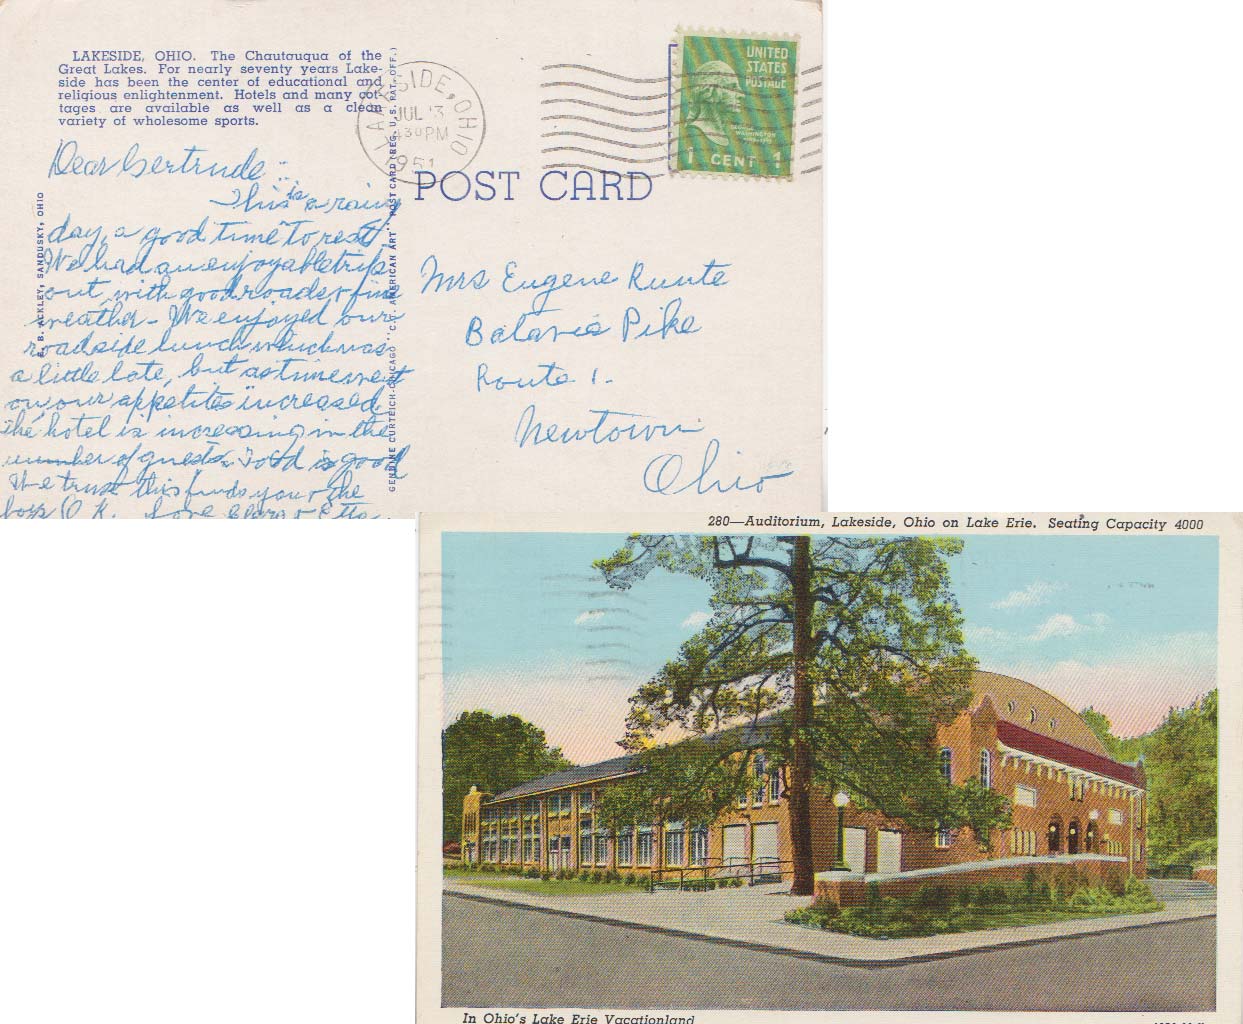 LAKESIDE, OHIO. The Chautauqua of the
Great Lakes. For nearly seventy years Lake-
side has been the center of educational and
religious enlightenment. Hotels and many cot-
tages are available as well as a clean
variety of wholesome sports.
Dear Gertrude:
This is a rainy
day, a good time to rest.
We had an enjoyable trip
out, with good roads & fine
weather - We enjoyed our
roadside lunch which was
a little late, but as time went
on, our appetites increased.
The hotel is increasing in the
number of guests. Food is good
We trust this finds you & the
boys O.K. Love Clara & Etta.
E. B. ACKLEY, SANDUSKY, OHIO
GENUINE CURTEICH-CHICAGO "C.T. AMERICAN ART" POST CARD (REG. U. S. PAT. OFF.)
LAKESIDE, OHIO
JUL 3
4 30 PM
1951
UNITED
STATES
POSTAGE
GEORGE
WASHINGTON
1789-1797
1 CENT 1
POST CARD
Mrs Eugene Runte
Batavia Pike
Route 1.
Newtown
Ohio
280—Auditorium, Lakeside, Ohio on Lake Erie. Seating Capacity 4000
In Ohio's Lake Erie Vacationland